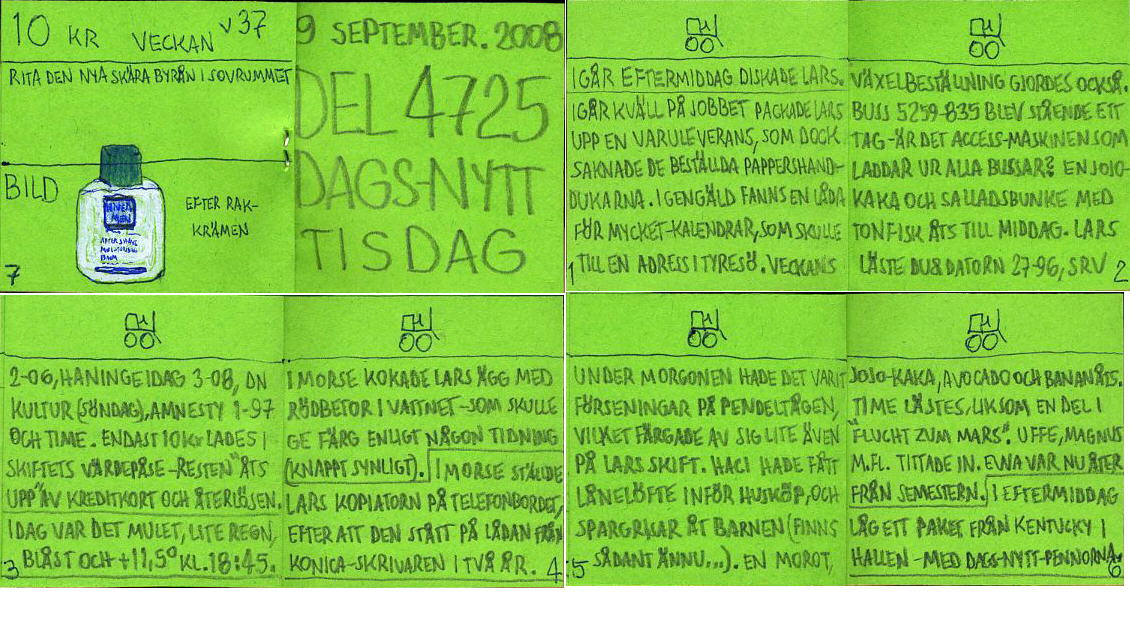 10 KR VECKAN V37
RITA DEN NYA SKÄRA BYRÅN I SOVRUMMET
BILD
NIVEA
MEN
AFTER SHAVE
BALM
EFTER RAK-
KRÄMEN
7
9 SEPTEMBER. 2008
DEL 4725
DAGS-NYTT
TISDAG
I GÅR EFTERMIDDAG DISKADE LARS.
IGÅR KVÄLL PÅ JOBBET PACKADE LARS
UPP EN VARULEVERANS, SOM DOCK
SAKNADE DE BESTÄLLDA PAPPERSHAND-
DUKARNA. I GENGÄLD FANNS EN LÅDA
FÖR MYCKET-KALENDRAR, SOM SKULLE
TILL EN ADRESS I TYRESÖ. VECKANS
1
VÄXELBESTÄLLNING GJORDES OCKSÅ.
BUSS 5259-835 BLEV STÅENDE ETT
TAG-ÄR DET ACCESS-MASKINEN SOM
LADDAR UR ALLA BUSSAR? EN JOJO-
KAKA OCH SALLADSBUNKE MED
TONFISK ÅTS TILL MIDDAG. LARS
LÄSTE DU&DATORN 27-96, SRV
2
2-06, HANINGE IDAG 3-08, DN
KULTUR (SÖNDAG), AMNESTY 1-97
OCH TIME. ENDAST 10 Kr LADES I
SKIFTETS VÄRDEPÅSE-RESTEN "ÅTS
UPP" AV KREDITKORT OCH ÅTERLÖSEN.
IDAG VAR DET MULET, LITE REGN,
BLÅST OCH +11,5° KL. 18:45.
3
I MORSE KOKADE LARS ÄGG MED
RÖDBETOR I VATTNET-SOM SKULLE
GE FÄRG ENLIGT NÅGON TIDNING
(KNAPPT SYNLIGT). I MORSE STÄLLDE
LARS KOPIATORN PÅ TELEFONBORDET,
EFTER ATT DEN STÅTT PÅ LÅDAN FRÅN
KONICA-SKRIVAREN I TVÅ ÅR.
4
UNDER MORGONEN HADE DET VARIT
FÖRSENINGAR PÅ PENDELTÅGEN,
VILKET FÄRGADE AV SIG LITE ÄVEN
PÅ LARS SKIFT. HACI HADE FÅTT
LÅNELÖFTE INFÖR HUSKÖP, OCH
SPARGRISAR ÅT BARNEN (FINNS
SÅDANT ÄNNU...). EN MOROT,
5
JOJO-KAKA, AVOCADO OCH BANAN ÅTS.
TIME LÄSTES, LIKSOM EN DEL I
"FLUCHT ZUM MARS". UFFE, MAGNUS
M.FL. TITTADE IN. EWA VAR NU ÅTER
FRÅN SEMESTERN. I EFTERMIDDAG
LÅG ETT PAKET FRÅN KENTUCKY I
HALLEN-MED DAGS-NYTT-PENNORNA.
6